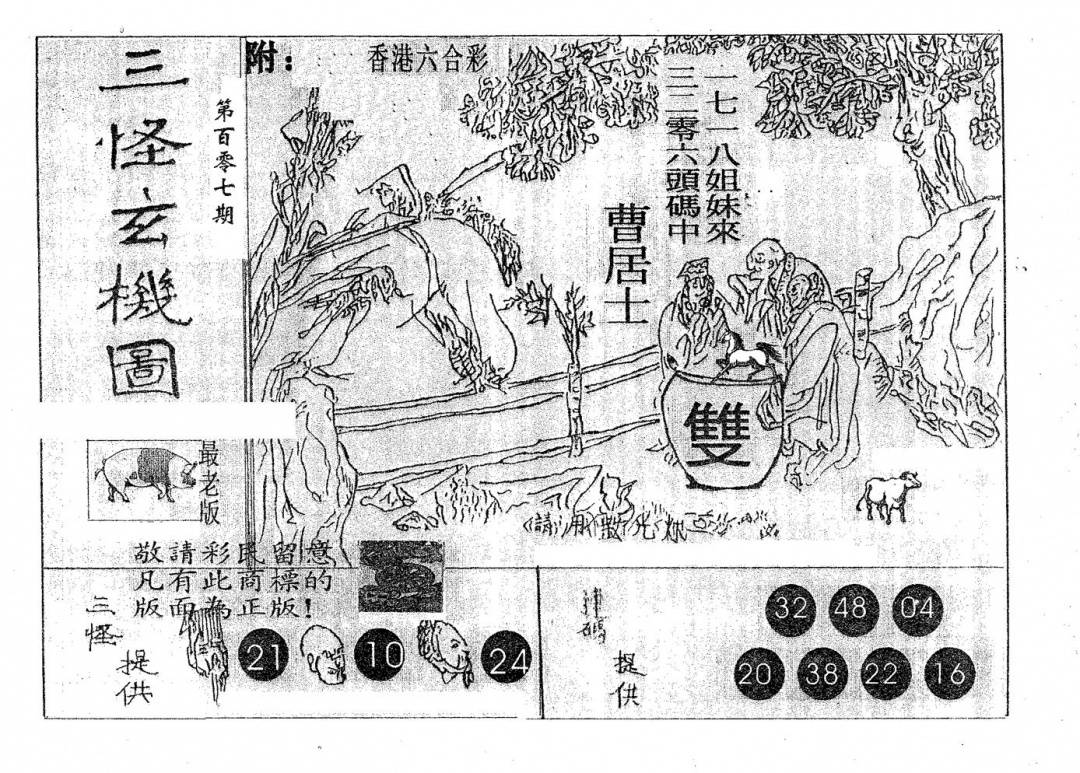 三怪玄機圖
第百零七期
附：
香港六合彩
一七一八姐妹來
三二零六頭碼中
曹居士
雙
最老版
敬請彩民留意
凡有此商標的
版面為正版！
三怪
提供
21
10
24
提供
32 48 04
20 38 22 16